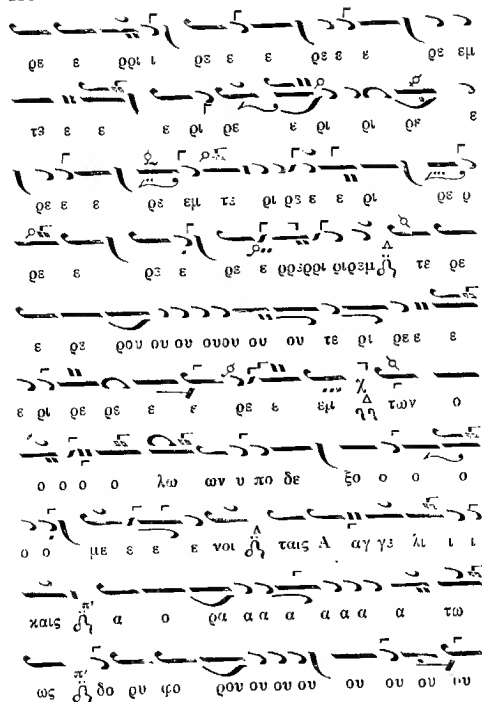 ρε ε ριρι ι ρε ε ε ρε ε ε ρε
τε ε ε ε ρι ρε ε ρι ρι ρε ε
ρε ε ε ρε τε ρι ρε ε ε ρι ρε ρ
ρε ε ρε ε ρε ε τε ρε
ε ρε ρου ου ου ουου ου ου τε ρι ρε ε ε
ε ρι ρε ρε ε ε ρε ε των ο
ο ο ο ο λω ων υ πο δε ξο ο ο ο
ο ο με ε ε ε νοι ταις Α αγ γε λι ι ι
καις α ο ρα α α α α α α α τω
ως δο ρυ φο ρου ου ου ου ου ου ου ου